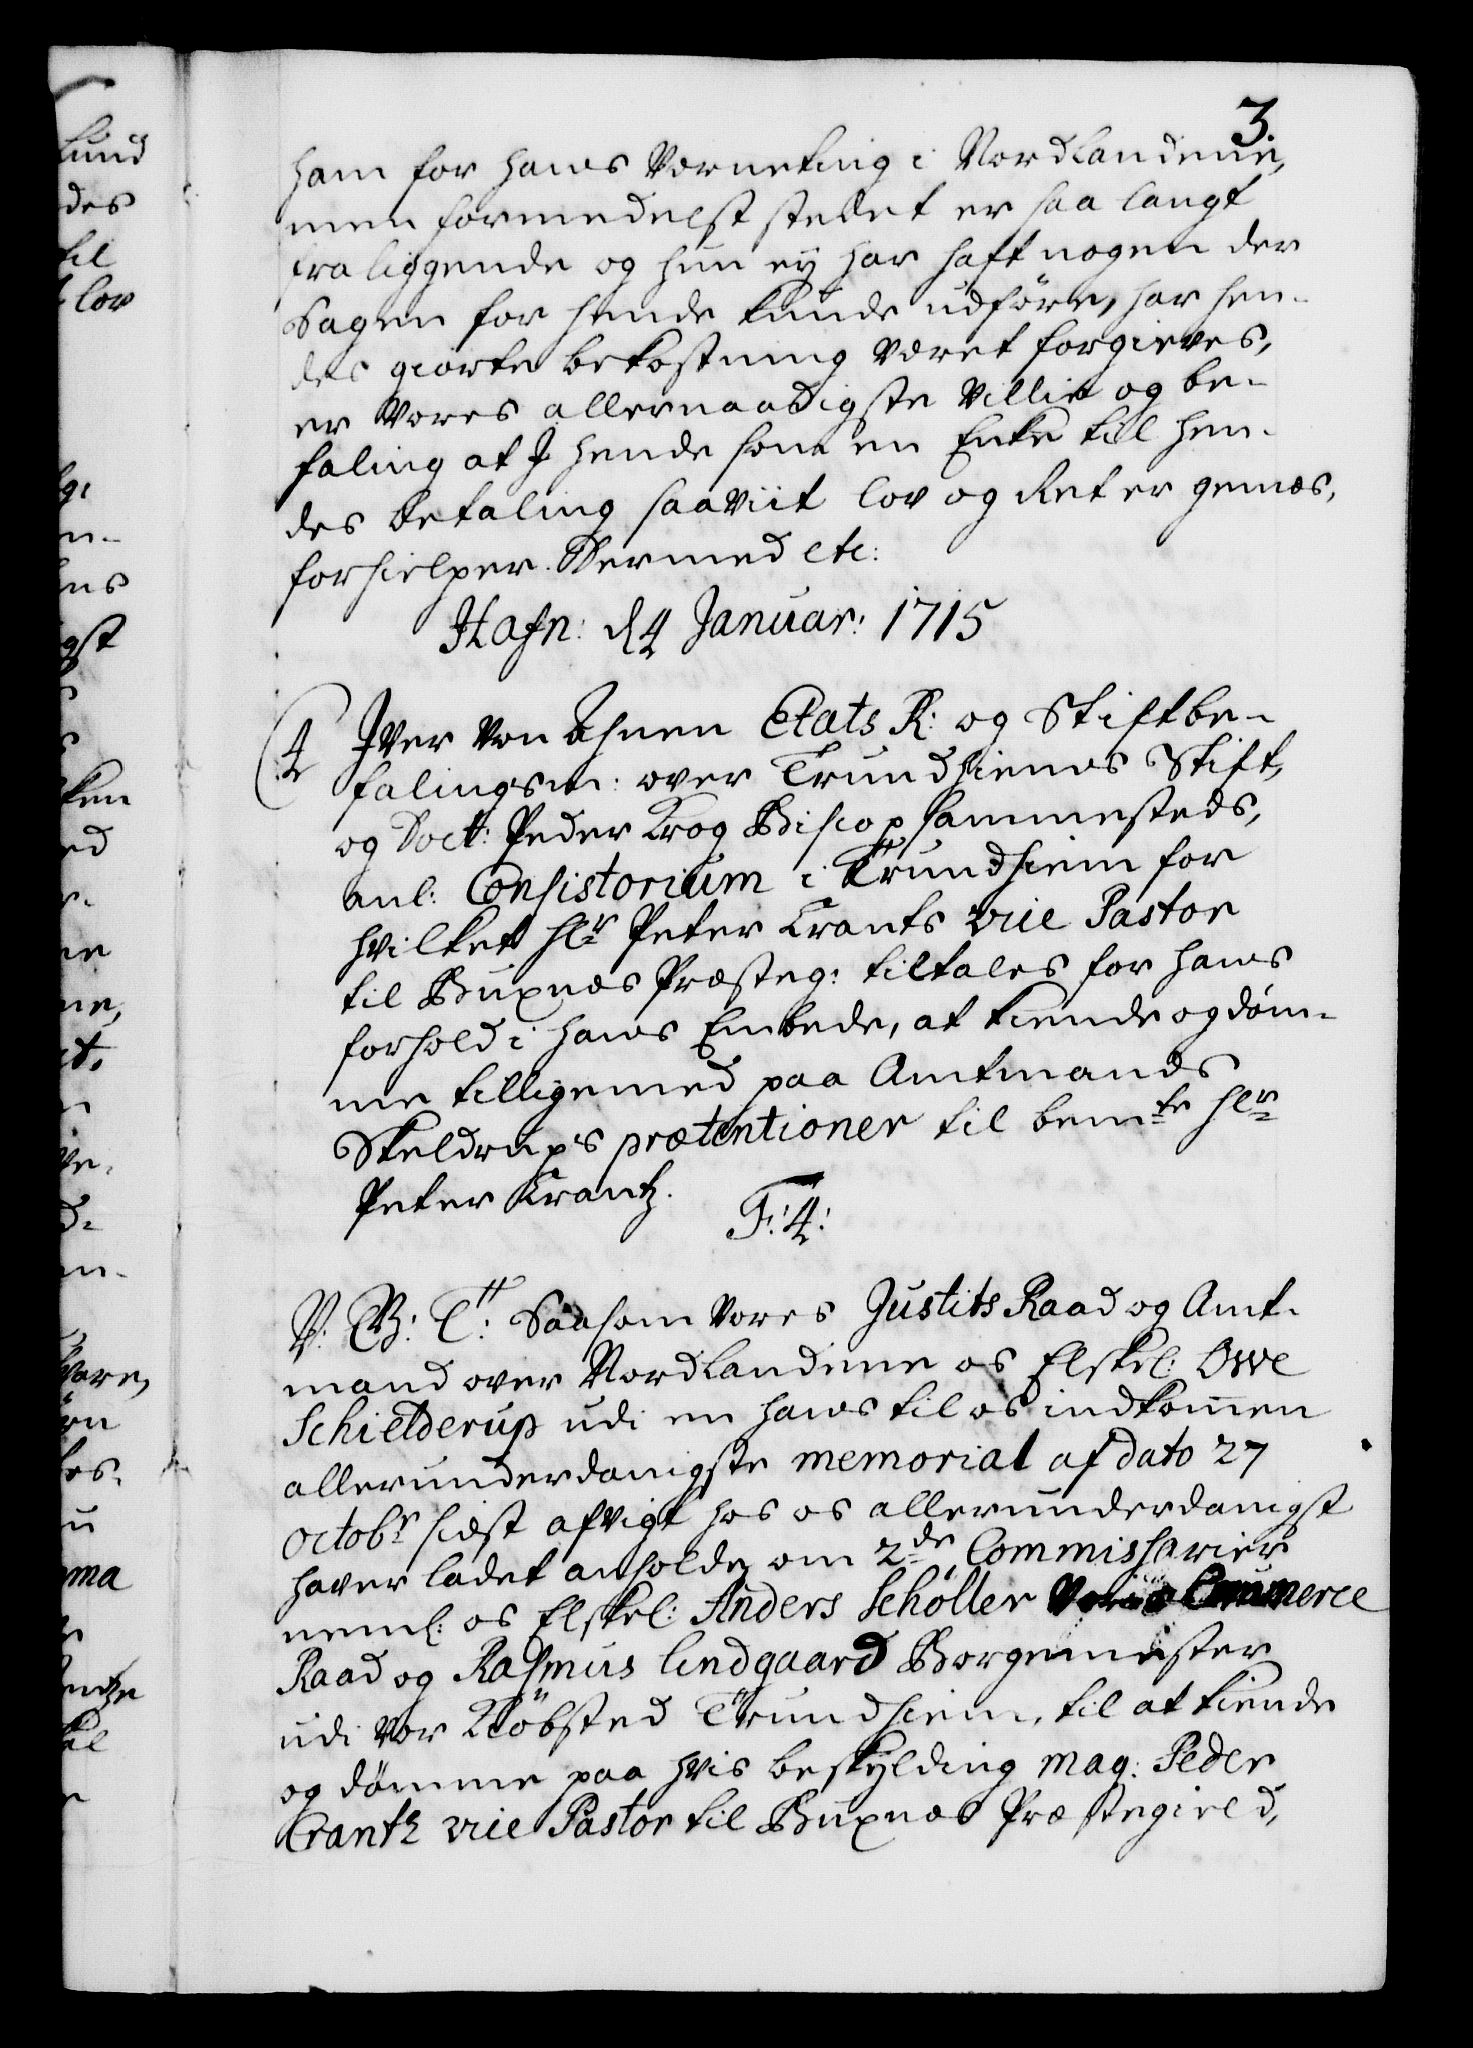 3.
ham for hans Værneting i Nordlandene,
men formedelst stedet er saa langt
fraliggende og hun ey har haft nogen der
Sagen for hende kunde udföre, har hen-
des giorte bekostning været forgieves,
er Vores allernaadigste Villie og be-
faling at I hende som en Enke til hen-
des betaling saaviit lov og Ret er gemæs,
forhielper. Dermed etc:
Hafn: d 4 Januar: 1715
4 Iver Von Ahnen Etats R: og Stiftbe-
falingsm: over Trundhiems Stift,
og Doct: Peder Krog Biscop sammesteds,
anl: Consistorium i Trundhiem for
hvilket Hr Peter Krants vice Pastor
til Buxnæs Præsteg: tiltales for hans
forhold i hans Embede, at kiende og døm-
me tilligemed paa Amtmands
Skeldrups prætentioner til bemte Hr
Peter Krantz.
F: 4:
V. G: T: Saasom Vores Justits Raad og Amt-
mand over Nordlandene os Elskel: Owe
Schielderup udi en hans til os indkommen
allerunderdanigste memorial af dato 27
Octobr sidst afvigt hos os allerunderdanigst
haver ladet anholde om 2de Commissarier
neml: os Elskel: Anders Schøller Vores Commerce
Raad og Rasmus lindgaard Borgemester
udi vor Kiöbsted Trundhiem, til at kiende
og dömme paa hvis beskylding Mag: Peder
Crantz vice Pastor til Buxnæs Præstegield,
lund
des
til
lov
n-
ens
gst
ken
ed
r-
ne
ne,
n-
vare,
u
ma